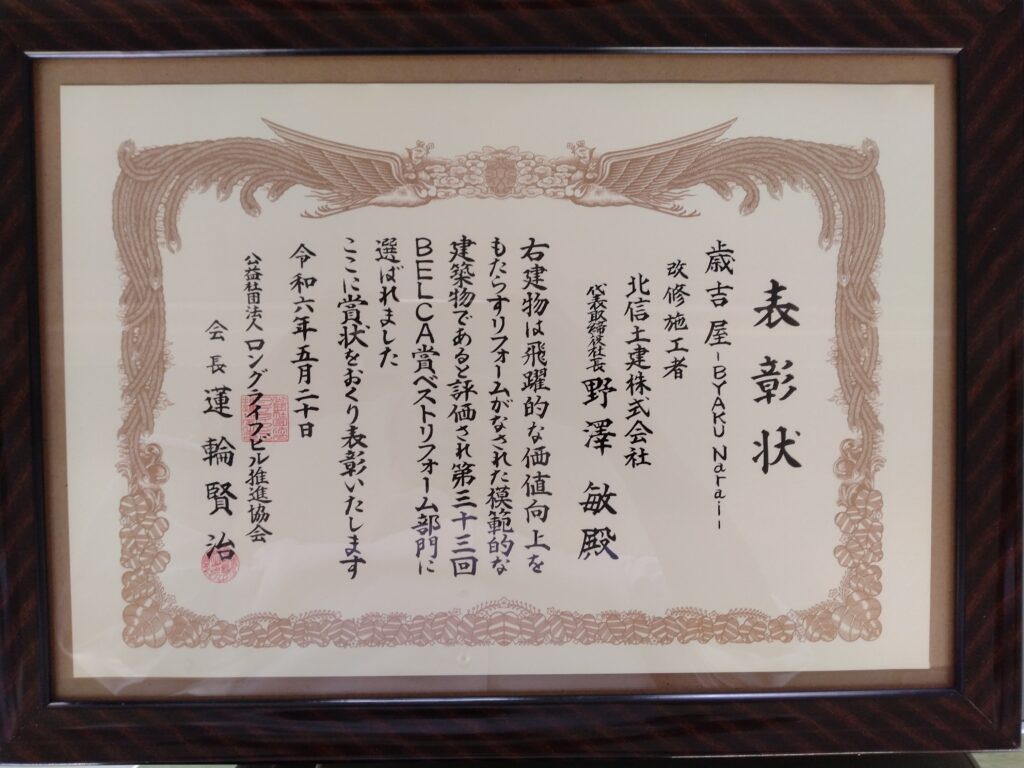 表彰状
歳吉屋-BYAKU Narai-
改修施工者
北信土建株式会社
代表取締役社長 野澤 敏殿
右建物は飛躍的な価値向上を
もたらすリフォームがなされた模範的な
建築物であると評価され第三十三回
BELCA賞ベストリフォーム部門に
選ばれました
ここに賞状をおくり表彰いたします
令和六年五月二十日
公益社団法人 ロングライフビル推進協会
会長 蓮輪賢治